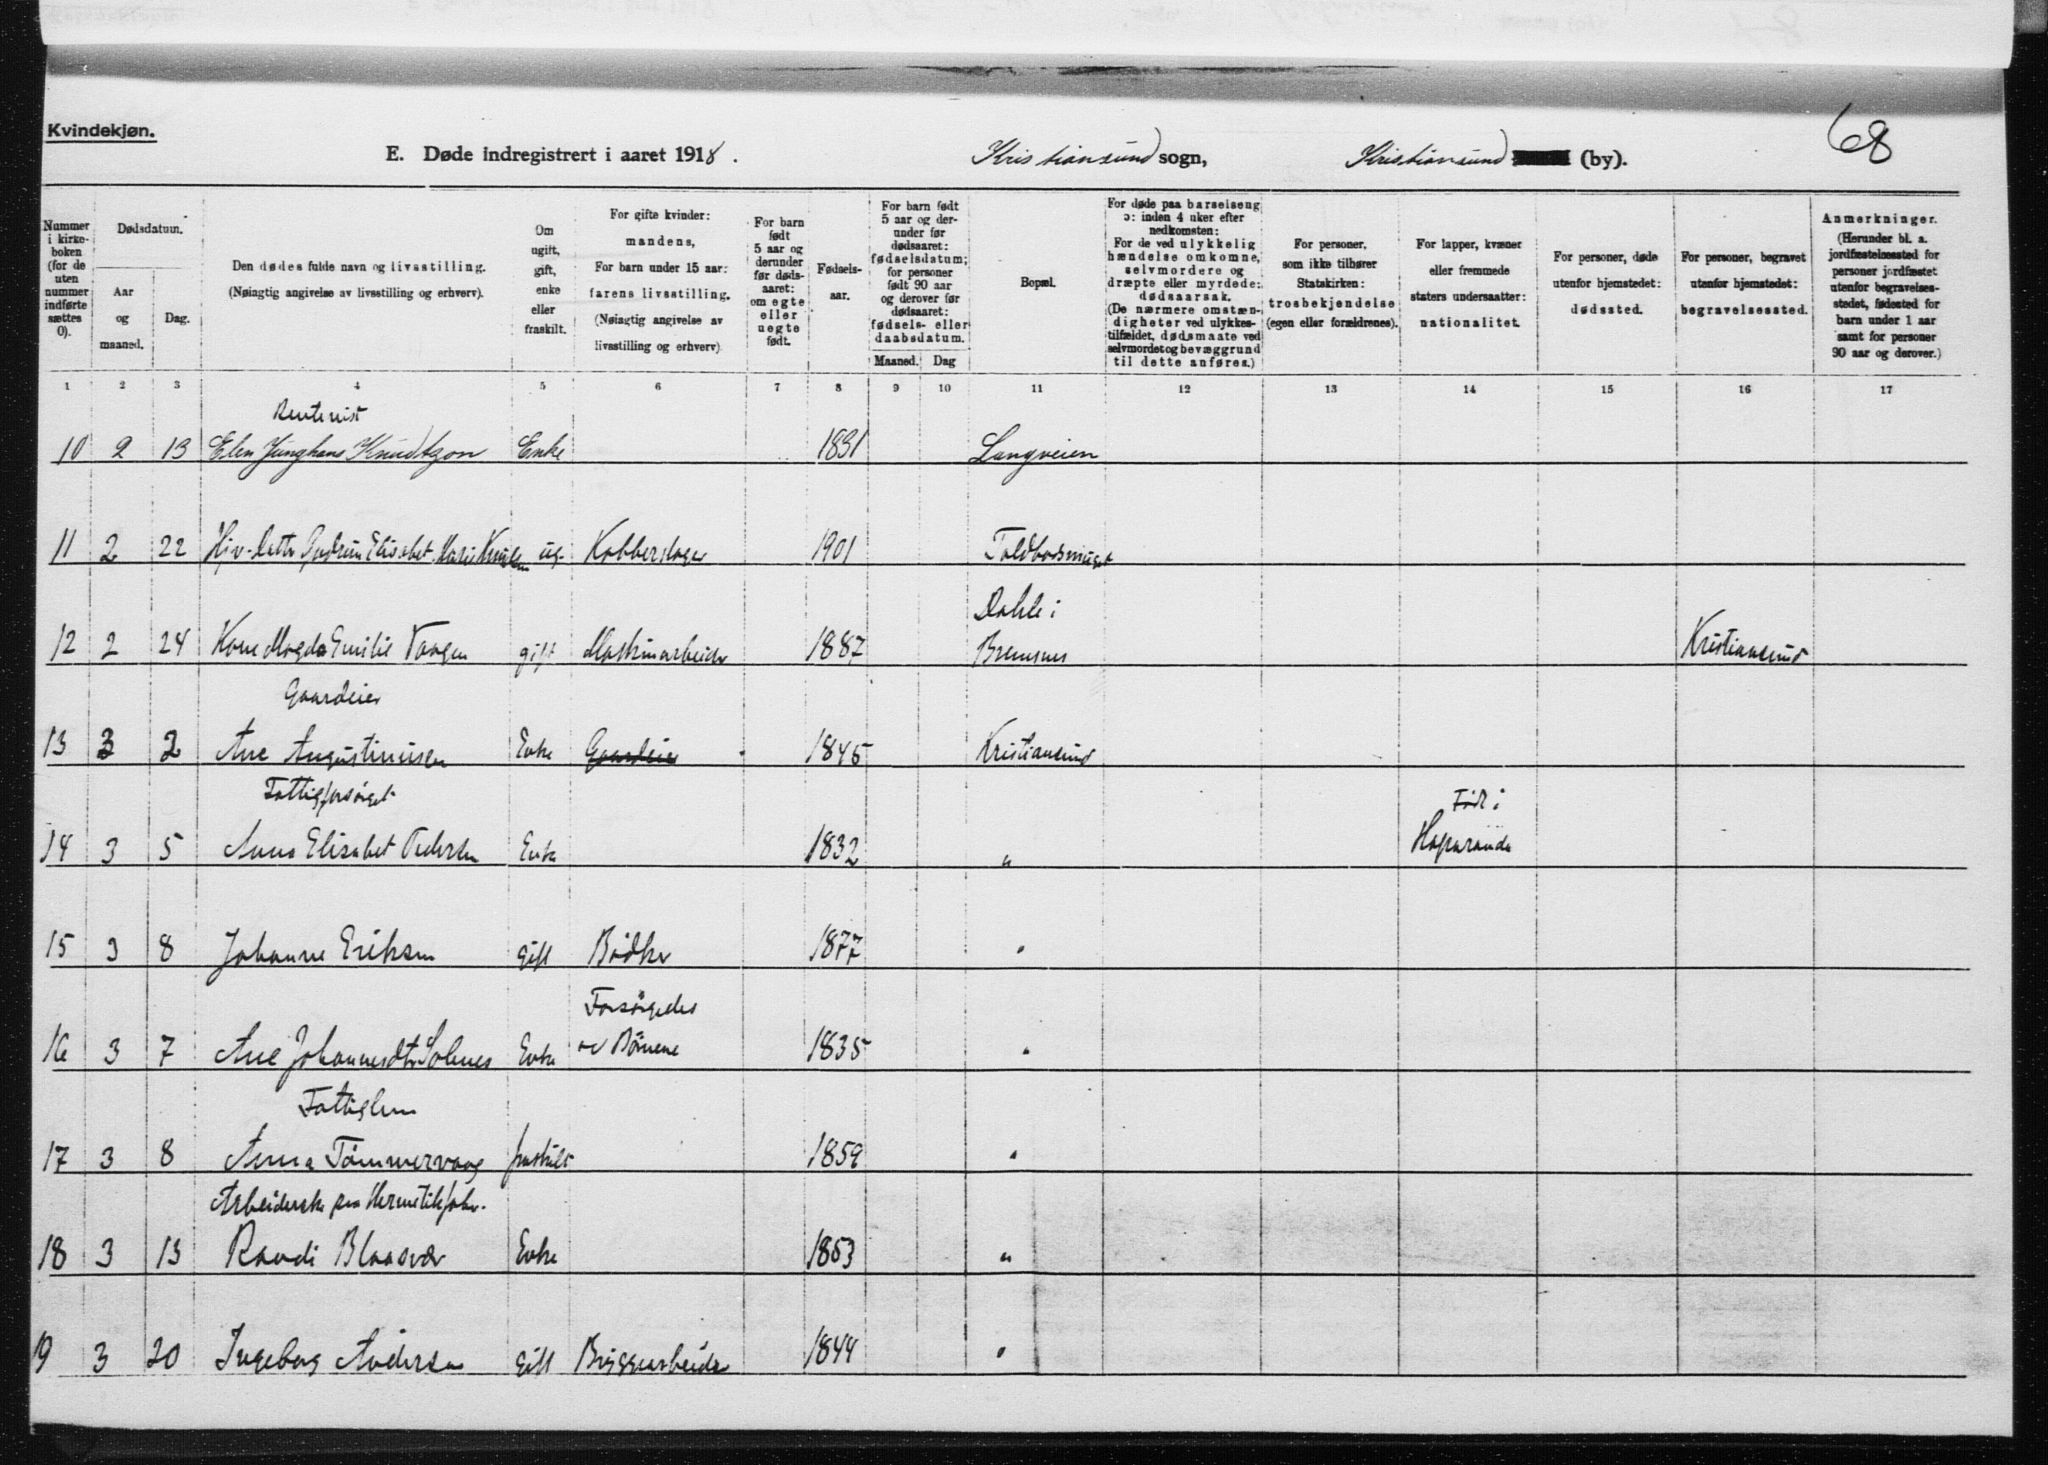 68
Kvindekjøn.
E. Døde indregistrert i aaret 1918. Kristiansund sogn, Kristiansund (by).
Nummer i kirke-boken (for de uten nummer indførte sættes 0).
Dødsdatum.
Aar og maaned.
Dag.
Den dødes fulde navn og livsstilling.
(Nøiagtig angivelse av livsstilling og erhverv).
Om ugift, gift, enke eller fraskilt.
For gifte kvinder: mandens,
For barn under 15 aar: farens livsstilling.
(Nøiagtig angivelse av livsstilling og erhverv).
For barn født 5 aar og derunder før døds-aaret: om egte eller uegte født.
Fødsels-aar.
For barn født 5 aar og der-under før dødsaaret: fødselsdatum; for personer født 90 aar og derover før dødsaaret: fødsels- eller daabsdatum.
Maaned.
Dag
Bopæl.
For døde paa barselseng ɔ: inden 4 uker efter nedkomsten:
For de ved ulykkelig hændelse omkomne, selvmordere og dræpte eller myrdede: dødsaarsak.
(De nærmere omstæn-digheter ved ulykkes-tilfældet, dødsmaate ved selvmordet og bevæggrund til dette anføres.)
For personer, som ikke tilhører Statskirken: trosbekjendelse (egen eller forældrenes).
For lapper, kvæner eller fremmede staters undersaatter: nationalitet.
For personer, døde utenfor hjemstedet: dødssted.
For personer, begravet utenfor hjemstedet: begravelsessted.
Anmerkninger.
(Herunder bl. a. jordfæstelsessted for personer jordfæstet utenfor begravelses-stedet, fødested for barn under 1 aar samt for personer 90 aar og derover.)
1 2 3 4 5 6 7 8 9 10 11 12 13 14 15 16 17
Rentenist
10 2 13 Elen Junghans Knudtzon Enke 1831 Langveien
11 2 22 Hjv. datter Gudrun Elisabet Marie Knudsen ug. Kobberslager 1901 Toldbodsmuget
Dahle i
12 2 24 Kone Magda Emilie Vaagen gift Maskinarbeider 1887 Bremsnes Kristiansund
Gaardeier
13 3 2 Ane Augustinusen Enke Gaardeier 1845 Kristiansund
Fattigforsørget Født i
14 3 5 Anna Elisabet Pedersen Enke 1832 " Haparanda
15 3 8 Johanne Eriksen gift Bødker 1877 "
Forsørgedes
16 3 7 Ane Johannesdtr Solnes Enke av Børnene 1835 "
Fattiglem
17 3 8 Anna Tømmervaag fraskilt 1859 "
Arbeiderske paa Hermetikfabr.
18 3 13 Randi Blaasvær Enke 1853 "
19 3 20 Ingeborg Andersen gift Bryggearbeider 1844 "